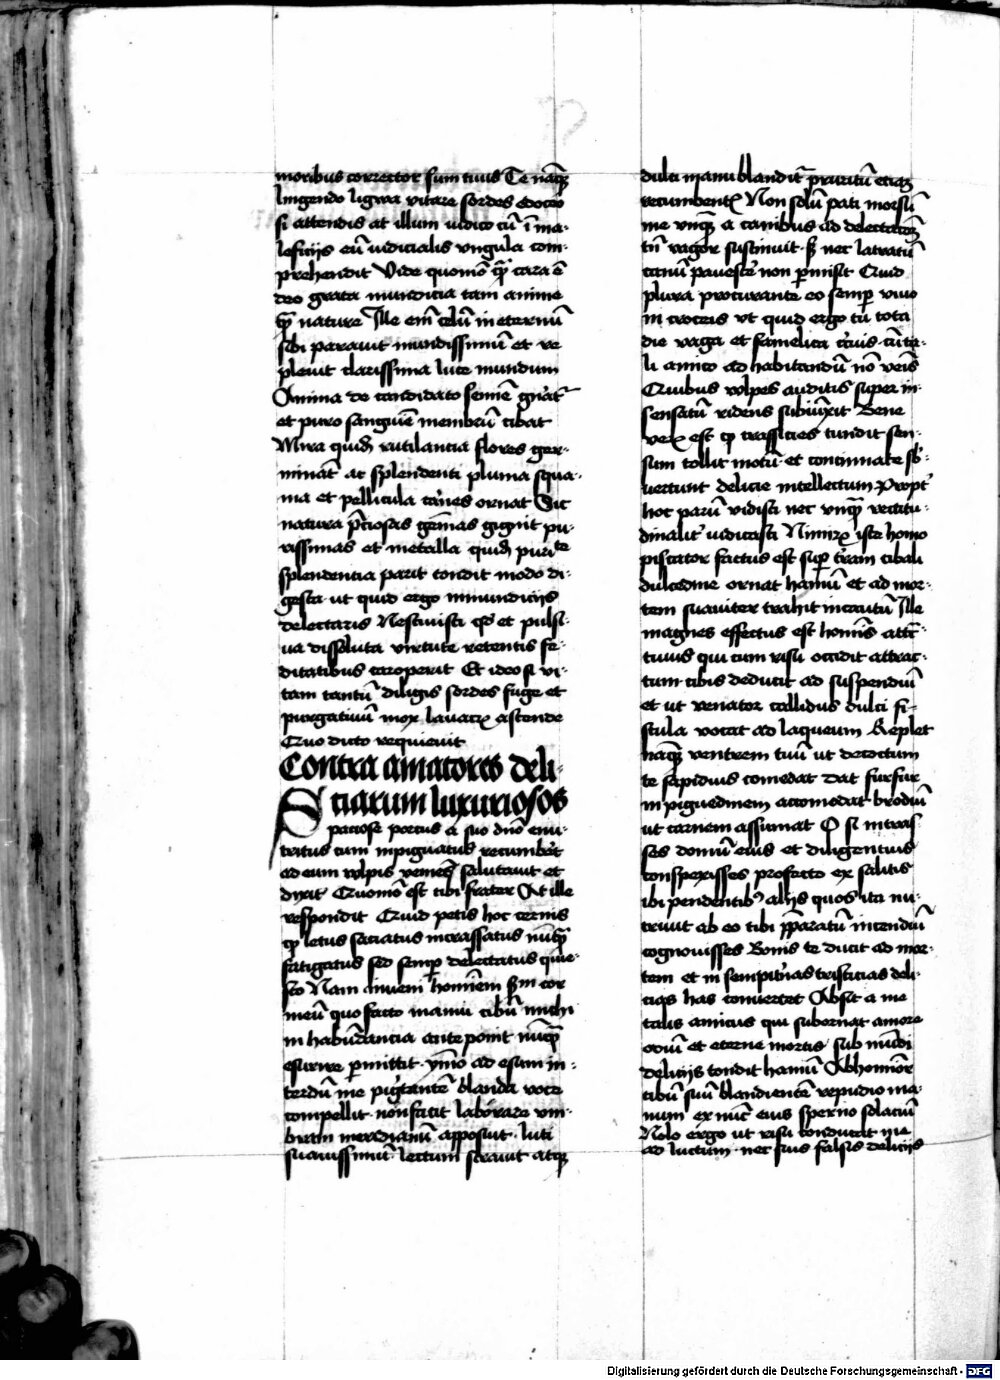 moribus corrector sum tuus Te nāq̄
lingendo ligwa vitare sordes edoceo
si attendis at illum iudico cū ī ma-
leficijs eū iudicialis vngula com-
prehendit Vide quomō q̄ cara ē
deo grata mundicia tam anime
q̄ nature Ille em̄ celū in eternū
sibi parauit mundissimū et re
pleuit clarissima luce mundum
Anima de candidato semīe gn̄at
et puro sanguīe membrū cibat
Mira quid rutilancia flores ger-
mināt ac splendenti pluma squa-
ma et pellicula carnes ornat Sic
natura p̄ciosas gēmas gignit pu-
rissimas et metalla quid puritate
splendencia parit condit modo di-
gesta ut quid ergo inmundicijs
delectaris Nescivisti qd et pulsi-
ua dissoluta virtute retentis fe-
ditatibus coroperit Et ideo si vi-
tam tantū diligis sordes fuge et
purgatiuū mox lauacrū ascende
Quo dicto requieuit
Contra amatores deli-
ciarum luxuriosos
Spaciose porcus a suo dn̄o enu-
tritus cum inpigwatus recumberet
ad eum vulpis veniēs salutauit et
dixit Quomō est tibi frater At ille
respondit Quid petis hoc cernis
q̄ letus saciatus incrassatus nūq̄
fatigatus sed semp̄ delectatus quie-
sco Nam inueni hominem sm̄ cor
meū quo facto manū cibū michi
in habūdancia ante ponit nūq̄
esurire p̄mittit ymō ad esum in-
terdū me pigtantē blanda voce
compellit non facit laborare vm-
bram meridianū apposuit luti
suauissimū lectum strauit atq̄
dulci manu blandit̄ p̄ruritū eciam
recumbentē Non solū pati morsū
me vnq̄ a canibus ad delectacōem
tn̄ vagor sustinuit s nec latratū
canū pauescere non p̄misit Quid
plura procurante eo semp̄ viuo
in croceis vt quid ergo tu tota
die vaga et famelica curris cū ta-
li amico ad habitandū nō venis
Quibus vulpes auditis super in-
sensatū ridens subiunxit Bene
verū est q̄ crassicies tundit sen-
sum tollit motū et concinnate sb-
uertunt delicie intellectum Propter
hoc parū vidisti nec vnq̄ rectitu-
dinalit iudicasti Nimirū iste homo
piscator factus est sup terram cibali
dulcedine ornat hamū et ad mor-
tem suauiter trahit incautū Ille
magnes effectus est hominis attrac-
tiuus qui cum risu occidit attrac-
tum cibis deducit ad suspendiū
et ut venator callidus dulci fi-
stula vocat ad laqueum Replet
nāq̄ ventrem tuū ut decoctum
te sapidius comedat Dat furfur
in pigwedinem accomodat brodiū
ut carnem assumat O si intras-
ses domū eius et diligentius
conspexisses profecto ex salitis
ibi pendentibus alijs quos ita nu-
triuit ab eo tibi p̄paratū incendiū
cognouisses Bonis te ducit ad mor-
tem et in sempiternas tristicias deli-
cias has conuertet Absit a me
talis amicus qui subornat amore
odiū et eterne mortis sub mūdi
delicijs condit hamū Abhomīor
cibū suū blandientē repudio ma-
num ex nūc eius sperno solaciū
Nolo ergo ut risu conducat me
ad luctum nec suis falsis delicijs
Digitalisierung gefördert durch die Deutsche Forschungsgemeinschaft - DFG